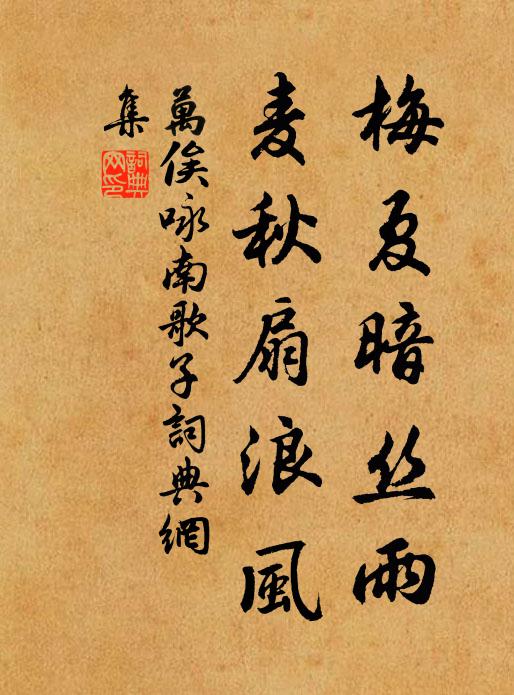 梅夏暗丝雨
麦秋扇浪風
萬俟咏南歌子詞典網
集
詞典網印